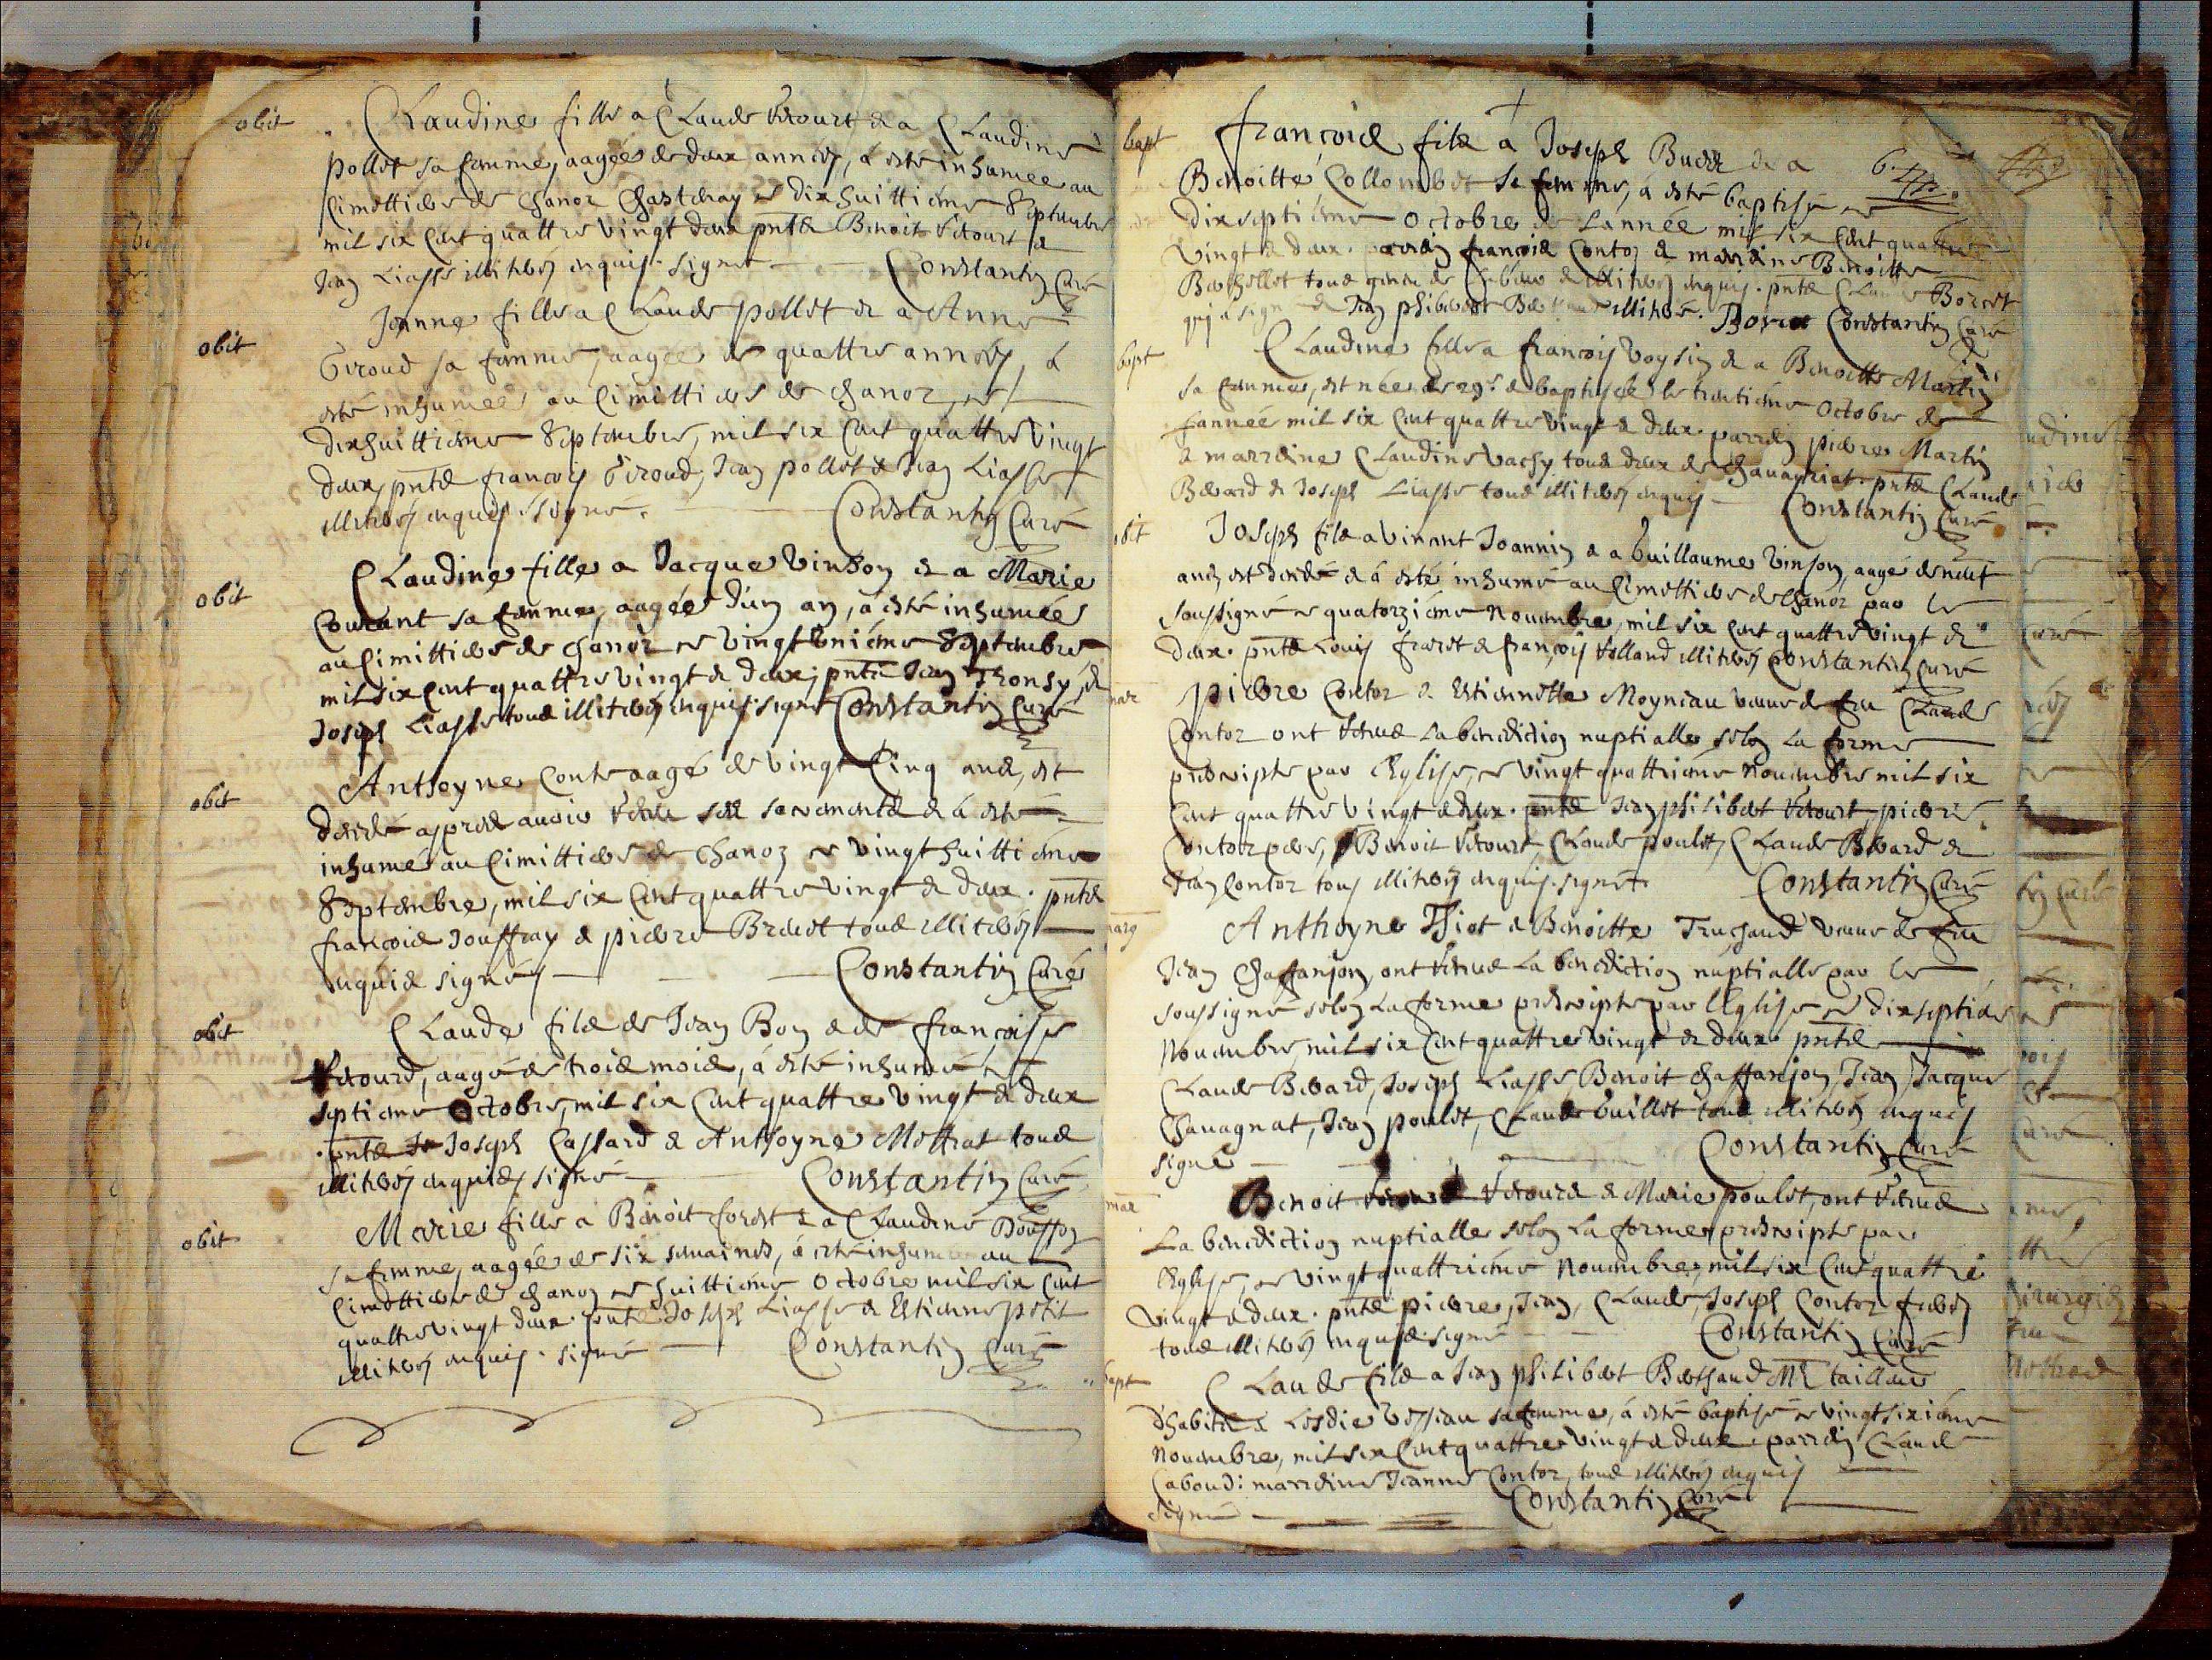 obit
Claudine fille a Claude Vitourt & a Claudine
Pollet sa femme, aagée de deux années, à esté inhumée au
Cimettiere de Chanoz Chastenay le dixhuittieme Septembre
mil six cent quattre vingt deux pntz Benoit Vitourt &
Jean Liasse illiterés enquis. signé Constantin Curé
obit
Jeanne fille a Claude Pollet & a Anne
Giroud sa femme, aagée de quattre années, à
esté inhumée au Cimittiere de Chanoz, le
dixhuittieme Septembre, mil six cent quattre vingt
deux, pntz francois Giroud, Jean Pollet & Jean Liasse
illiterés enquis. signé. Constantin Curé
obit
Claudine fille a Jacque Vinson & a Marie
Courant sa femme, aagée d'un an, à esté inhumée
au Cimittiere de Chanoz le vingt unieme Septembre
mil six cent quattre vingt & deux, pntz Jean Thonsy, &
Joseph Liasse tous illiterés enquis. signé Constantin Curé
obit
Anthoyne Conte aagé de vingt cinq ans, est
decedé aprez avoir receu ses sacrements & à esté
inhumé au Cimittiere de Chanoz le vingt huittieme
Septembre, mil six cent quattre vingt & deux. pntz
francois Jouffray & pierre Brevet tous illiterés
enquis signé Constantin Curé
obit
Claude filz de Jean Bon & de francoise
Vitourd, aagé de trois mois, à esté inhumé, le
septieme Octobre, mil six cent quattre vingt & deux
pntz Joseph Cassard & Anthoyne Mottrat tous
illiterés enquis signé Constantin Curé
obit
Marie fille a Benoit forest & a Claudine Bousson
sa femme, aagée de six semaines, à esté inhumée au
Cimettiere de Chanoz le huittieme Octobre mil six cent
quattre vingt deux. pntz Joseph Liasse & Estienne petit
illiterés enquis. signé Constantin Curé
bapt
francois filz a Joseph Buez & a
Benoitte Collombet sa femme, à esté baptisé le
dixseptieme Octobre de L'année mil six cent quattre
vingt & deux. parrein francois Contoz & marreine Benoitte
Berthellet tous illiterés enquis. pntz Claude Boret
qui a signé & Jean philibert illiteré. Boret Constantin Curé
bapt
Claudine fille a francois Voysin & a Benoitte Martin
sa femme, est née le 29e & baptisée le trentieme Octobre de
L'année mil six cent quattre vingt & deux. parrein pierre Martin
& marreine Claudine Vachy tous deux de Chavagniat. pntz Claude
Bevard & Joseph Liasse tous illiterés enquis Constantin Curé
obit
Joseph filz a Vincent Joannin & a Guillaume Vinson, aagé de neuf
ans, est decedé & à esté inhumé au Cimettiere de Chanoz par le
soussigné le quatorzieme Novembre, mil six cent quattre vingt &
deux. pntz Louis frarest & francois Volland illiterés Constantin Curé
mar
pierre Contoz & Estiennette Moyniau veuve de feu Claude
Contoz ont receus La benediction nuptialle selon La forme
prescripte par L'Eglise, le vingt quattrieme Novembre mil six
cent quattre vingt & deux. pntz Jean philibert Vitourt, pierre
Contoz pere, Benoit Vitourt, Claude poulet, Claude Bevard &
Jean Contoz tous illiterés enquis. signé. Constantin Curé
marg
Anthoyne Thiot & Benoitte Truchaud veuve de feu
Jean Chaffanjon, ont receus La benediction nuptialle par le
soussigné selon La forme prescripte par L'Eglise le dixseptieme
Novembre, mil six cent quattre vingt & deux. pntz
Claude Bevard, Joseph Liasse Benoit Chaffanjon, Jean Jacque
Chavagnat, Jean poulet, Claude Guillet tous illiterés enquis
signé Constantin Curé
mar
Benoit Vitourd & Marie poulet, ont receus
La benediction nuptialle selon La forme prescripte par
L'Eglise, le vingt quattrieme Novembre, mil six cent quattre
vingt & deux. pntz pierre, Jean, Claude, Joseph Contoz freres
tous illiterés enquis. signé Constantin Curé
bapt
Claude filz a Jean philibert Berthaud Me tailleur
d'habitz & Losdie Vessiau sa femme, à esté baptisé le vingt sixieme
Novembre, mil six cent quattre vingt & deux. parrein Claude
Caboud: marreine Jeanne Contoz, tous illiterés enquis
signé Constantin Curé